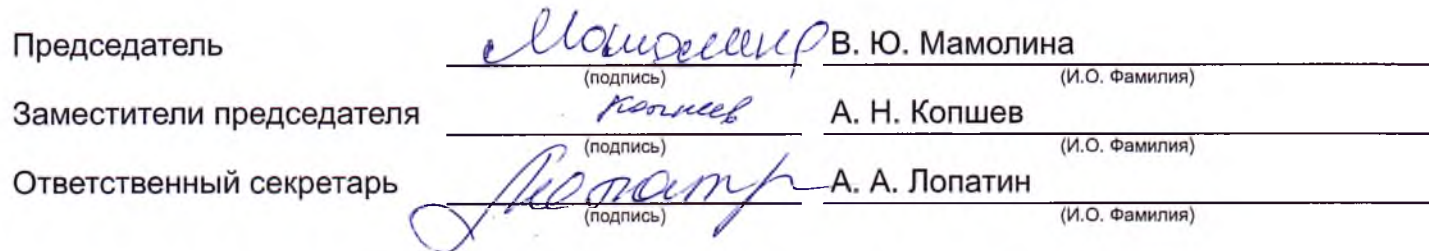 Председатель Мамолина В. Ю. Мамолина
(подпись) (И.О. Фамилия)
Заместители председателя Копшев А. Н. Копшев
(подпись) (И.О. Фамилия)
Ответственный секретарь А. А. Лопатин
(подпись) (И.О. Фамилия)